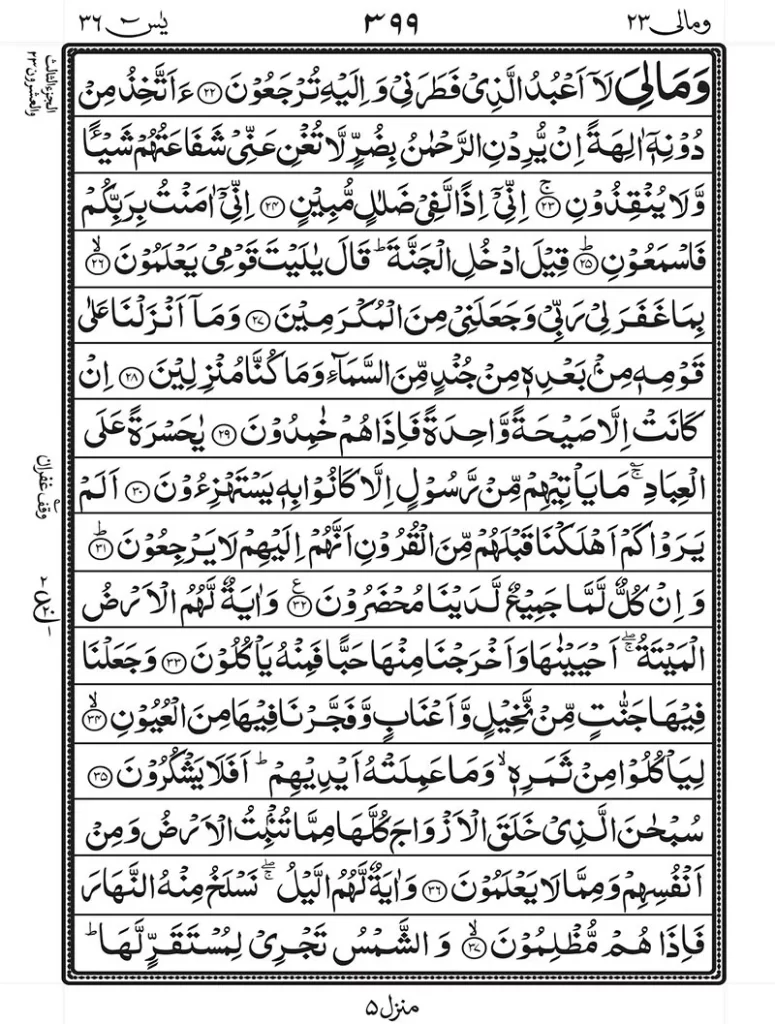 ومالی ٢٣
٣٩٩
يٰسٓ ٣٦
الجزء الثالث والعشرون ٢٣
وَمَالِیَ لَاۤ اَعۡبُدُ الَّذِیۡ فَطَرَنِیۡ وَاِلَيۡهِ تُرۡجَعُوۡنَ ﴿۲۲﴾ ءَاَتَّخِذُ مِنۡ
دُوۡنِهٖۤ اٰلِهَةً اِنۡ يُّرِدۡنِ الرَّحۡمٰنُ بِضُرٍّ لَّا تُغۡنِ عَنِّیۡ شَفَاعَتُهُمۡ شَيۡــًٔا
وَّلَا يُنۡقِذُوۡنِ ۚ﴿۲۳﴾ اِنِّیۡۤ اِذًا لَّفِیۡ ضَلٰلٍ مُّبِيۡنٍ ﴿۲۴﴾ اِنِّیۡۤ اٰمَنۡتُ بِرَبِّكُمۡ
فَاسۡمَعُوۡنِ ؕ﴿۲۵﴾ قِيۡلَ ادۡخُلِ الۡجَنَّةَ ؕ قَالَ يٰلَيۡتَ قَوۡمِیۡ يَعۡلَمُوۡنَ ۙ﴿۲۶﴾
بِمَا غَفَرَلِیۡ رَبِّیۡ وَجَعَلَنِیۡ مِنَ الۡمُكۡرَمِيۡنَ ﴿۲۷﴾ وَمَاۤ اَنۡزَلۡنَا عَلٰی
قَوۡمِهٖ مِنۡۢ بَعۡدِهٖ مِنۡ جُنۡدٍ مِّنَ السَّمَآءِ وَمَا كُنَّا مُنۡزِلِيۡنَ ﴿۲۸﴾ اِنۡ
كَانَتۡ اِلَّا صَيۡحَةً وَّاحِدَةً فَاِذَا هُمۡ خٰمِدُوۡنَ ﴿۲۹﴾ يٰحَسۡرَةً عَلَی
الۡعِبَادِ ۚؔ مَا يَاۡتِيۡهِمۡ مِّنۡ رَّسُوۡلٍ اِلَّا كَانُوۡا بِهٖ يَسۡتَهۡزِءُوۡنَ ﴿۳۰﴾ اَلَمۡ
وقف غفران
يَرَوۡا كَمۡ اَهۡلَكۡنَا قَبۡلَهُمۡ مِّنَ الۡقُرُوۡنِ اَنَّهُمۡ اِلَيۡهِمۡ لَا يَرۡجِعُوۡنَ ؕ﴿۳۱﴾
وَاِنۡ كُلٌّ لَّمَّا جَمِيۡعٌ لَّدَيۡنَا مُحۡضَرُوۡنَ ﴿۳۲﴾ ع وَاٰيَةٌ لَّهُمُ الۡاَرۡضُ
الۡمَيۡتَةُ ۚۖ اَحۡيَيۡنٰهَا وَاَخۡرَجۡنَا مِنۡهَا حَبًّا فَمِنۡهُ يَاۡكُلُوۡنَ ﴿۳۳﴾ وَجَعَلۡنَا
فِيۡهَا جَنّٰتٍ مِّنۡ نَّخِيۡلٍ وَّاَعۡنَابٍ وَّفَجَّرۡنَا فِيۡهَا مِنَ الۡعُيُوۡنِ ۙ﴿۳۴﴾
لِيَاۡكُلُوۡا مِنۡ ثَمَرِهٖ ۙ وَمَا عَمِلَتۡهُ اَيۡدِيۡهِمۡ ؕ اَفَلَا يَشۡكُرُوۡنَ ﴿۳۵﴾
سُبۡحٰنَ الَّذِیۡ خَلَقَ الۡاَزۡوَاجَ كُلَّهَا مِمَّا تُنۡۢبِتُ الۡاَرۡضُ وَمِنۡ
اَنۡفُسِهِمۡ وَمِمَّا لَا يَعۡلَمُوۡنَ ﴿۳۶﴾ وَاٰيَةٌ لَّهُمُ الَّيۡلُ ۚۖ نَسۡلَخُ مِنۡهُ النَّهَارَ
فَاِذَا هُمۡ مُّظۡلِمُوۡنَ ۙ﴿۳۷﴾ وَالشَّمۡسُ تَجۡرِیۡ لِمُسۡتَقَرٍّ لَّهَا ؕ
منزل ۵